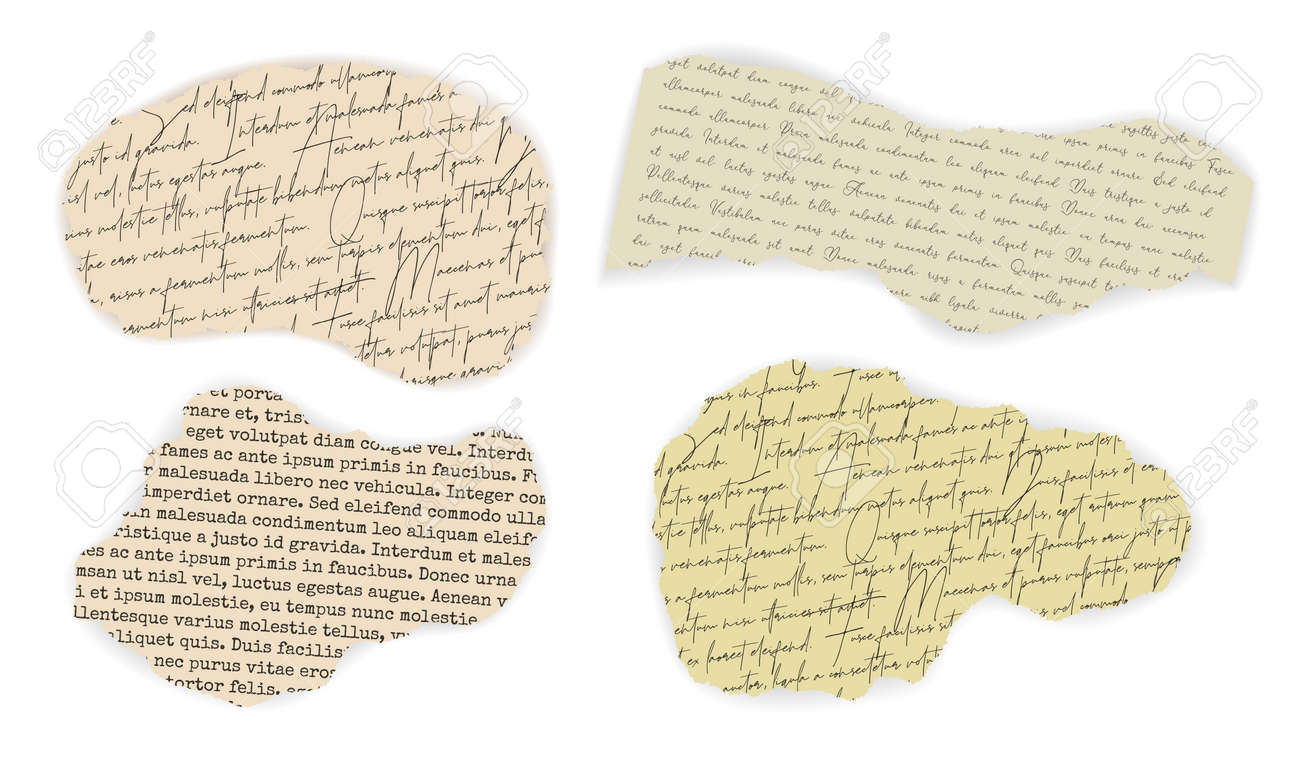 Sed eleifend commodo ullamcorp
e. Interdum et malesuada fames a
justo id gravida. Aenean venenatis dui
isl vel, luctus egestas augue.
ius molestie tellus, vulputate bibendum metus aliquet quis.
itae eros venenatis fermentum. Quisque suscipit tortor felis,
a, risus a fermentum mollis, sem turpis elementum dui, eget f
rmentum nisi ultricies sit amet. Maecenas et pu
Fusce facilisis sit amet mauris
tetur volutpat, purus jus
risque gravi
eget volutpat diam congue vel
ullamcorper malesuada libero nec vehicula. Integer commodo urna vel imperdiet ornare. Sed eleifend
commodo ullamcorper. Proin malesuada condimentum leo aliquam eleifend. Duis tristique a justo id
gravida. Interdum et malesuada fames ac ante ipsum primis in faucibus. Donec urna dui, accumsan
ut nisl vel, luctus egestas augue. Aenean venenatis dui et ipsum molestie, eu tempus nunc molestie.
Pellentesque varius molestie tellus, vulputate bibendum metus aliquet quis. Duis facilisis et erat
sollicitudin. Vestibulum nec purus vitae eros venenatis fermentum. Quisque suscipit to
rutrum quam malesuada sit amet. Donec malesuada risus a fermentum mollis, sem
dui, eget fauci
amet
et porta
rnare et, trist
eget volutpat diam congue vel. Interdu
fames ac ante ipsum primis in faucibus. Fu
r malesuada libero nec vehicula. Integer com
imperdiet ornare. Sed eleifend commodo ulla
in malesuada condimentum leo aliquam eleife
ristique a justo id gravida. Interdum et males
es ac ante ipsum primis in faucibus. Donec urna
msan ut nisl vel, luctus egestas augue. Aenean v
i et ipsum molestie, eu tempus nunc molestie.
llentesque varius molestie tellus, vu
aliquet quis. Duis facilis
nec purus vitae eros
tortor felis, eget
quis in faucibus. Fusce u
Sed eleifend commodo ullamcorper.
d gravida. Interdum et malesuada fames ac ante i
luctus egestas augue. Aenean venenatis dui et ipsum molest
stie tellus, vulputate bibendum metus aliquet quis. Duis facilisis et er
venenatis fermentum. Quisque suscipit tortor felis, eget rutrum quam
a fermentum mollis, sem turpis elementum dui, eget faucibus orci justo ut p
entum nisi ultricies sit amet. Maecenas et purus vulputate, semp
et ex laoreet eleifend. Fusce facilisis sit
s vel commodo
auctor, ligula a consectetur volut
123RF
123RF
123RF
123RF
123RF
123RF